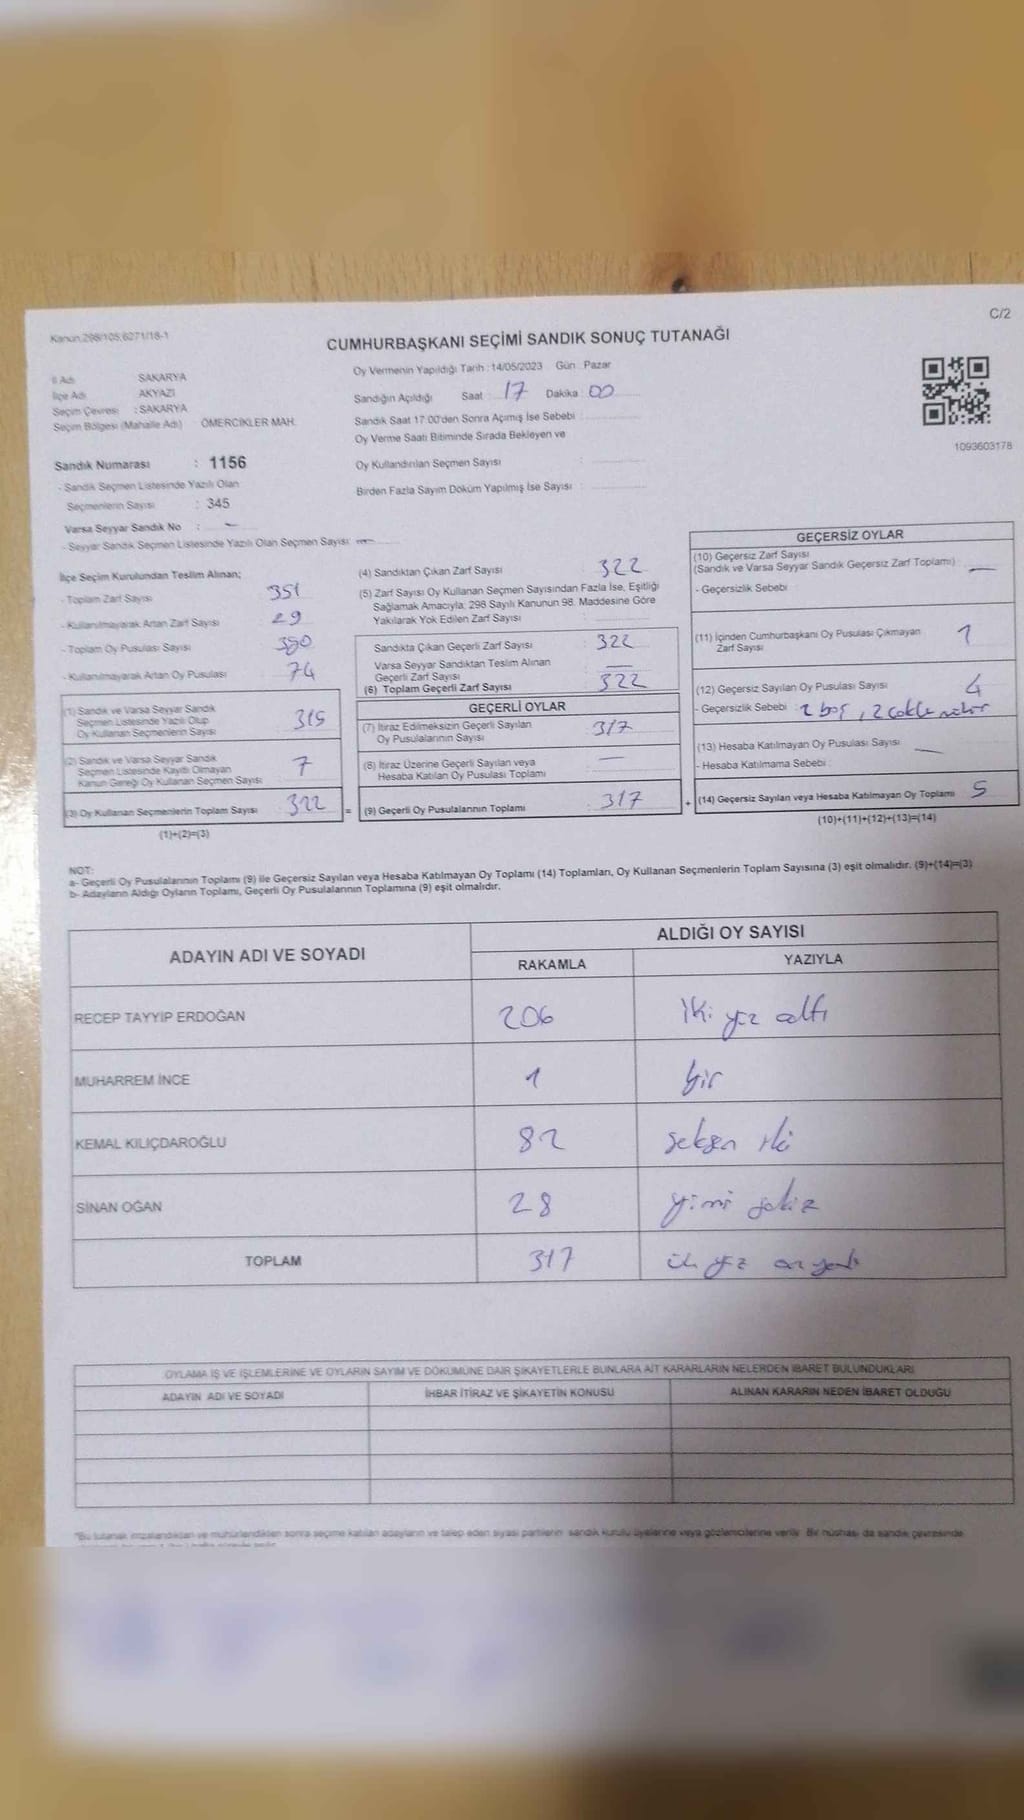 C/2
Kanun:298/105;6271/18-1
CUMHURBAŞKANI SEÇİMİ SANDIK SONUÇ TUTANAĞI
İl Adı SAKARYA
İlçe Adı AKYAZI
Seçim Çevresi : SAKARYA
Seçim Bölgesi (Mahalle Adı) ÖMERCİKLER MAH.
Sandık Numarası : 1156
- Sandık Seçmen Listesinde Yazılı Olan
Seçmenlerin Sayısı : 345
Varsa Seyyar Sandık No : –
- Seyyar Sandık Seçmen Listesinde Yazılı Olan Seçmen Sayısı: –
Oy Vermenin Yapıldığı Tarih : 14/05/2023 Gün : Pazar
Sandığın Açıldığı Saat : 17 Dakika : 00
Sandık Saat 17:00'den Sonra Açımış İse Sebebi :
Oy Verme Saati Bitiminde Sırada Bekleyen ve
Oy Kullandırılan Seçmen Sayısı :
Birden Fazla Sayım Döküm Yapılmış İse Sayısı :
1093603178
İlçe Seçim Kurulundan Teslim Alınan;
- Toplam Zarf Sayısı 351
- Kullanılmayarak Artan Zarf Sayısı 29
- Toplam Oy Pusulası Sayısı 390
- Kullanılmayarak Artan Oy Pusulası 74
(1) Sandık ve Varsa Seyyar Sandık
Seçmen Listesinde Yazılı Olup
Oy Kullanan Seçmenlerin Sayısı 315
(2) Sandık ve Varsa Seyyar Sandık
Seçmen Listesinde Kayıtlı Olmayan
Kanun Gereği Oy Kullanan Seçmen Sayısı 7
(3) Oy Kullanan Seçmenlerin Toplam Sayısı 322 =
(1)+(2)=(3)
(4) Sandıktan Çıkan Zarf Sayısı 322
(5) Zarf Sayısı Oy Kullanan Seçmen Sayısından Fazla İse, Eşitliği
Sağlamak Amacıyla; 298 Sayılı Kanunun 98. Maddesine Göre
Yakılarak Yok Edilen Zarf Sayısı
Sandıkta Çıkan Geçerli Zarf Sayısı 322
Varsa Seyyar Sandıktan Teslim Alınan
Geçerli Zarf Sayısı —
(6) Toplam Geçerli Zarf Sayısı 322
GEÇERLİ OYLAR
(7) İtiraz Edilmeksizin Geçerli Sayılan
Oy Pusulalarının Sayısı : 317
(8) İtiraz Üzerine Geçerli Sayılan veya
Hesaba Katılan Oy Pusulası Toplamı : —
(9) Geçerli Oy Pusulalarının Toplamı : 317 +
GEÇERSİZ OYLAR
(10) Geçersiz Zarf Sayısı
(Sandık ve Varsa Seyyar Sandık Geçersiz Zarf Toplamı) —
- Geçersizlik Sebebi :
(11) İçinden Cumhurbaşkanı Oy Pusulası Çıkmayan
Zarf Sayısı 1
(12) Geçersiz Sayılan Oy Pusulası Sayısı 4
- Geçersizlik Sebebi : 2 boş, 2
(13) Hesaba Katılmayan Oy Pusulası Sayısı —
- Hesaba Katılmama Sebebi :
(14) Geçersiz Sayılan veya Hesaba Katılmayan Oy Toplamı 5
(10)+(11)+(12)+(13)=(14)
NOT:
a- Geçerli Oy Pusulalarının Toplamı (9) ile Geçersiz Sayılan veya Hesaba Katılmayan Oy Toplamı (14) Toplamları, Oy Kullanan Seçmenlerin Toplam Sayısına (3) eşit olmalıdır. (9)+(14)=(3)
b- Adayların Aldığı Oyların Toplamı, Geçerli Oy Pusulalarının Toplamına (9) eşit olmalıdır.
ADAYIN ADI VE SOYADI ALDIĞI OY SAYISI
RAKAMLA YAZIYLA
RECEP TAYYİP ERDOĞAN 206 iki yüz altı
MUHARREM İNCE 1 bir
KEMAL KILIÇDAROĞLU 82 seksen iki
SİNAN OĞAN 28 yirmi sekiz
TOPLAM 317 üç yüz on yedi
OYLAMA İŞ VE İŞLEMLERİNE VE OYLARIN SAYIM VE DÖKÜMÜNE DAİR ŞİKAYETLERLE BUNLARA AİT KARARLARIN NELERDEN İBARET BULUNDUKLARI
ADAYIN ADI VE SOYADI İHBAR İTİRAZ VE ŞİKAYETİN KONUSU ALINAN KARARIN NEDEN İBARET OLDUĞU
*Bu tutanak imzalandıktan ve mühürlendikten sonra seçime katılan adayların ve talep eden siyasi partilerin sandık kurulu üyelerine veya gözlemcilerine verilir. Bir nüshası da sandık çevresinde